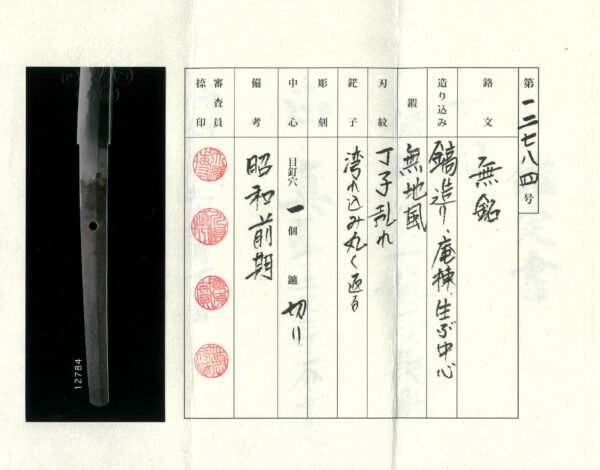 第一二七八四号
銘文 無銘
造り込み 鎬造り、庵棟、生ぶ中心
鍜 無地風
刃紋 丁子乱れ
鋩子 湾れ込み丸く返る
彫刻
中心 目釘穴 一個 鑢 切り
備考 昭和前期
審査員捺印
12784